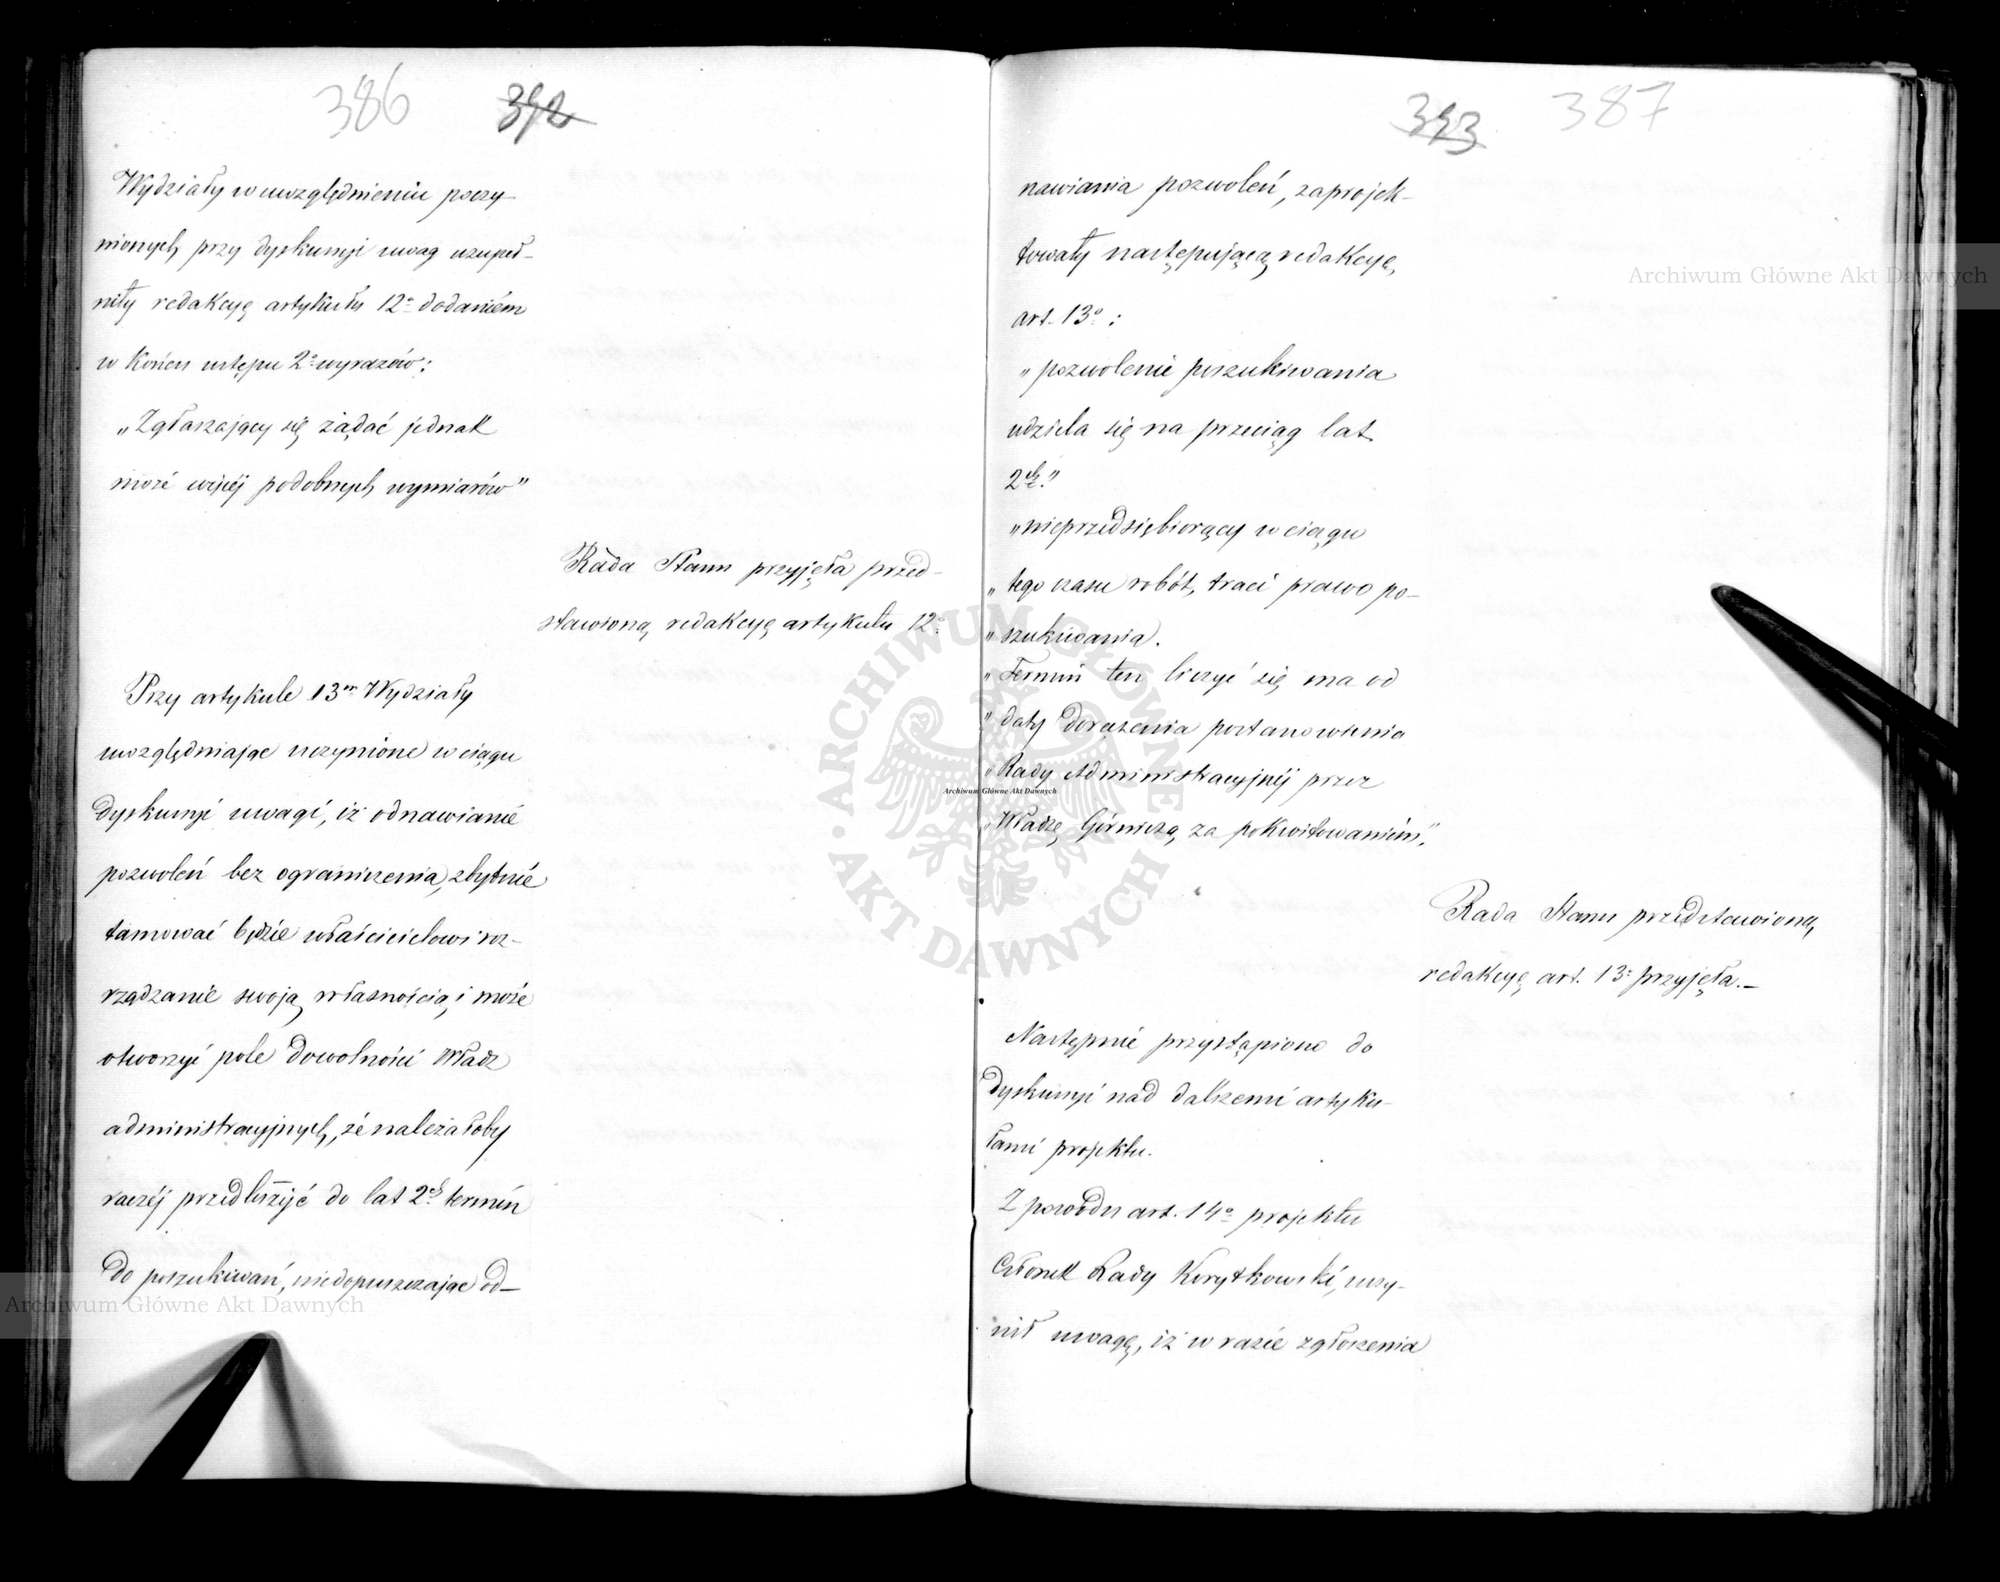 386 392
Wydziały w uwzględnieniu poczy-
nionych przy dyskusyi uwag uzupeł-
niły redakcyę artykułu 12º dodaniem
w końcu ustępu 2º wyrazów:
„Zgłaszający się żądać jednak
może więcéj podobnych wymiarów"
Rada Stanu przyjęła przed-
stawioną redakcyę artykułu 12º.
Przy artykule 13m Wydziały
uwzględniając uczynione w ciągu
dyskusyi uwagi, iż odnawianie
pozwoleń bez ograniczenia, zbytnie
tamować będzie właścicielowi roz-
rządzanie swoją własnością, i może
otworzyć pole dowolności Władz
administracyjnych, że należałoby
raczéj przedłużyć do lat 2ch termin
do poszukiwań, niedopuszczając od-
393 387
nawiania pozwoleń, zaprojek-
towały następującą redakcyę,
art. 13º:
„pozwolenie poszukiwania
udziela się na przeciąg lat
2ch."
„nieprzedsiębiorący w ciągu
„tego czasu robót, traci prawo po-
„szukiwania.
„Termin ten liczyć się ma od
„daty doręczenia postanowienia
„Rady Administracyjnéj przez
„Władzę Górniczą za pokwitowaniem".
Rada Stanu przedstawioną,
redakcyę art. 13º przyjęła.—
Następnie przystąpiono do
dyskusyi nad dalszemi artyku-
łami projektu.
Z powodu art. 14º projektu
Członek Rady Korytkowski, uczy-
nił uwagę, iż w razie zgłoszenia
Archiwum Główne Akt Dawnych
Archiwum Główne Akt Dawnych
Archiwum Główne Akt Dawnych
ARCHIWUM GŁÓWNE AKT DAWNYCH